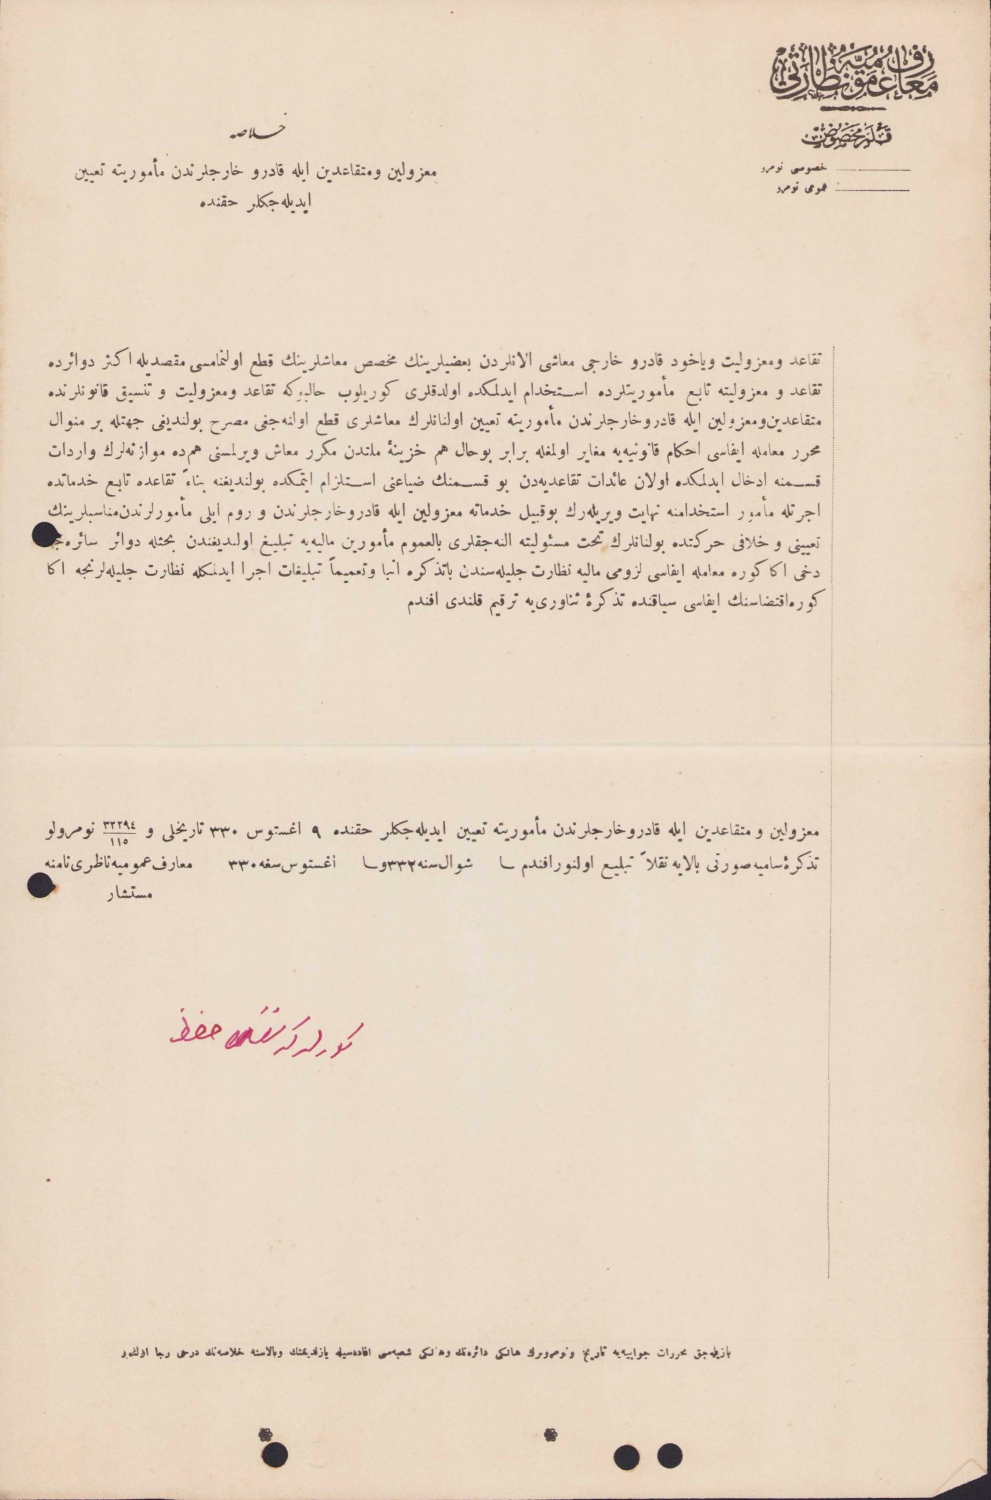 معارف عموميه نظارتى
قلم مخصوص
خصوصى نومرو
عمومى نومرو
خلاصه
معزولين ومتقاعدين ايله قادرو خارجلرندن مأموريته تعيين
ايديله‌جكلر حقنده
تقاعد ومعزوليت وياخود قادرو خارجى معاشى الانلردن بعضيلرينك مخصص معاشلرينك قطع اولنمامسى مقصديله اكثر دوائرده
تقاعد و معزوليته تابع مأموريتلرده استخدام ايدلمكده اولدقلرى كوريلوب حالبوكه تقاعد ومعزوليت و تنسيق قانونلرنده
متقاعدين‌ومعزولين ايله قادروخارجلرندن مأموريته تعيين اولنانلرك معاشلرى قطع اولنه‌جغى مصرح بولنديغى جهتله بر منوال
محرر معامله ايفاسى احكام قانونيه‌يه مغاير اولمغله برابر بوحال هم خزينۀ ملتدن مكرر معاش ويرلمسنى هم‌ده موازنه‌لرك واردات
قسمنه ادخال ايدلمكده اولان عائدات تقاعديه‌دن بو قسمنك ضياعنى استلزام ايتمكده بولنديغنه بناءً تقاعده تابع خدماتده
اجرتله مأمور استخدامنه نهايت ويريله‌رك بوقبيل خدماته معزولين ايله قادروخارجلرندن و روم ايلى مأمورلرندن‌مناسبلرينك
تعيينى و خلافى حركتده بولنانلرك تحت مسئوليته النه‌جقلرى بالعموم مأمورين ماليه‌يه تبليغ اولنديغندن بحثله دوائر سائره‌جه
دخى اكا كوره معامله ايفاسى لزومى ماليه نظارت جليله‌سندن باتذكره انبا وتعميماً تبليغات اجرا ايدلمكله نظارت جليله‌لرنجه اكا
كوره‌اقتضاسنك ايفاسى سياقنده تذكرۀ ثناورى‌يه ترقيم قلندى افندم
معزولين و متقاعدين ايله قادروخارجلرندن مأموريته تعيين ايديله‌جكلر حقنده ٩ اغستوس ٣٣٠ تاريخلى و ٣٢٢٩٤/١١٥ نومرولو
تذكرۀ‌ساميه‌صورتى بالايه نقلاً تبليغ اولنورافندم ‌فى شوال‌سنه٣٣٢وفى اغستوس‌سنه٣٣٠ معارف‌عموميه‌ناظرى‌نامنه
مستشار
حفظ
يازيله‌جق محررات جوابيه‌يه تاريخ ونومرولرك هانكى دائره‌نك وهانكى شعبه‌سى افاده‌سيله يازلديغنك وبالاسنه خلاصه‌نك درجى رجا اولنور